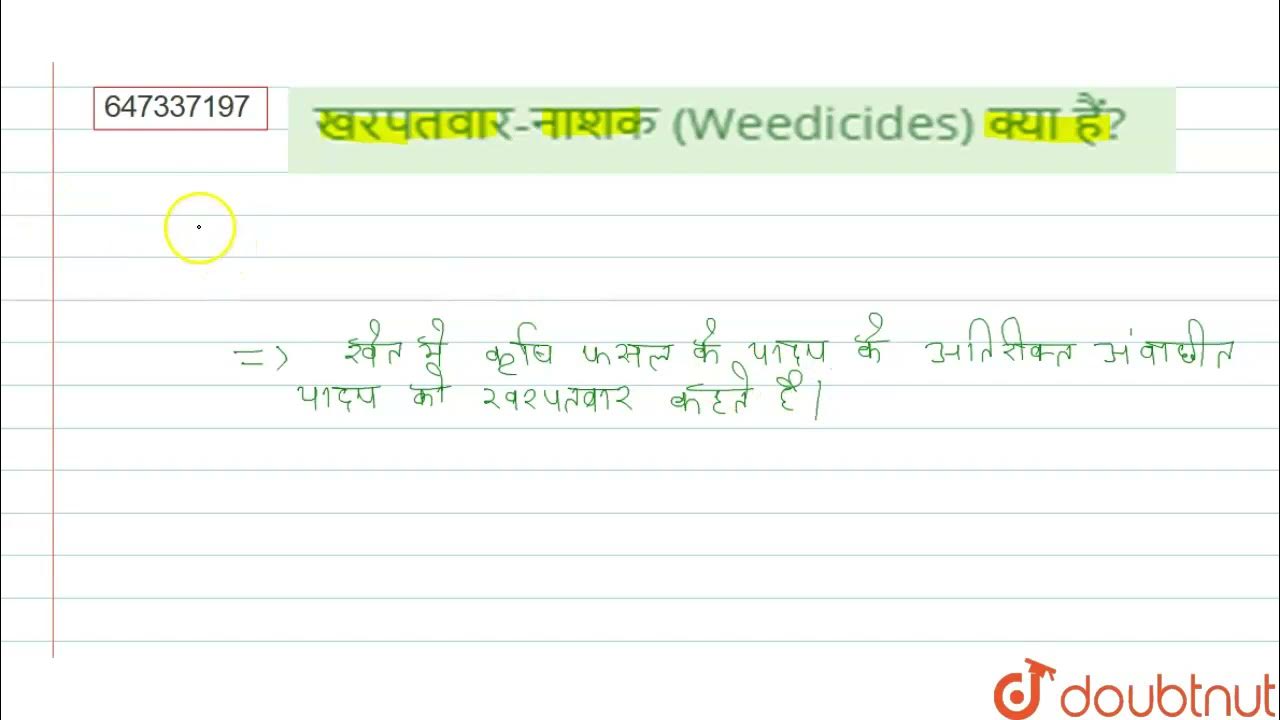 647337197
खरपतवार-नाशक (Weedicides) क्या हैं?
=> खेत में कृषि फसल के पादप के अतिरिक्त अंवाछीत
पादप को खरपतवार कहते है।
doubtnut